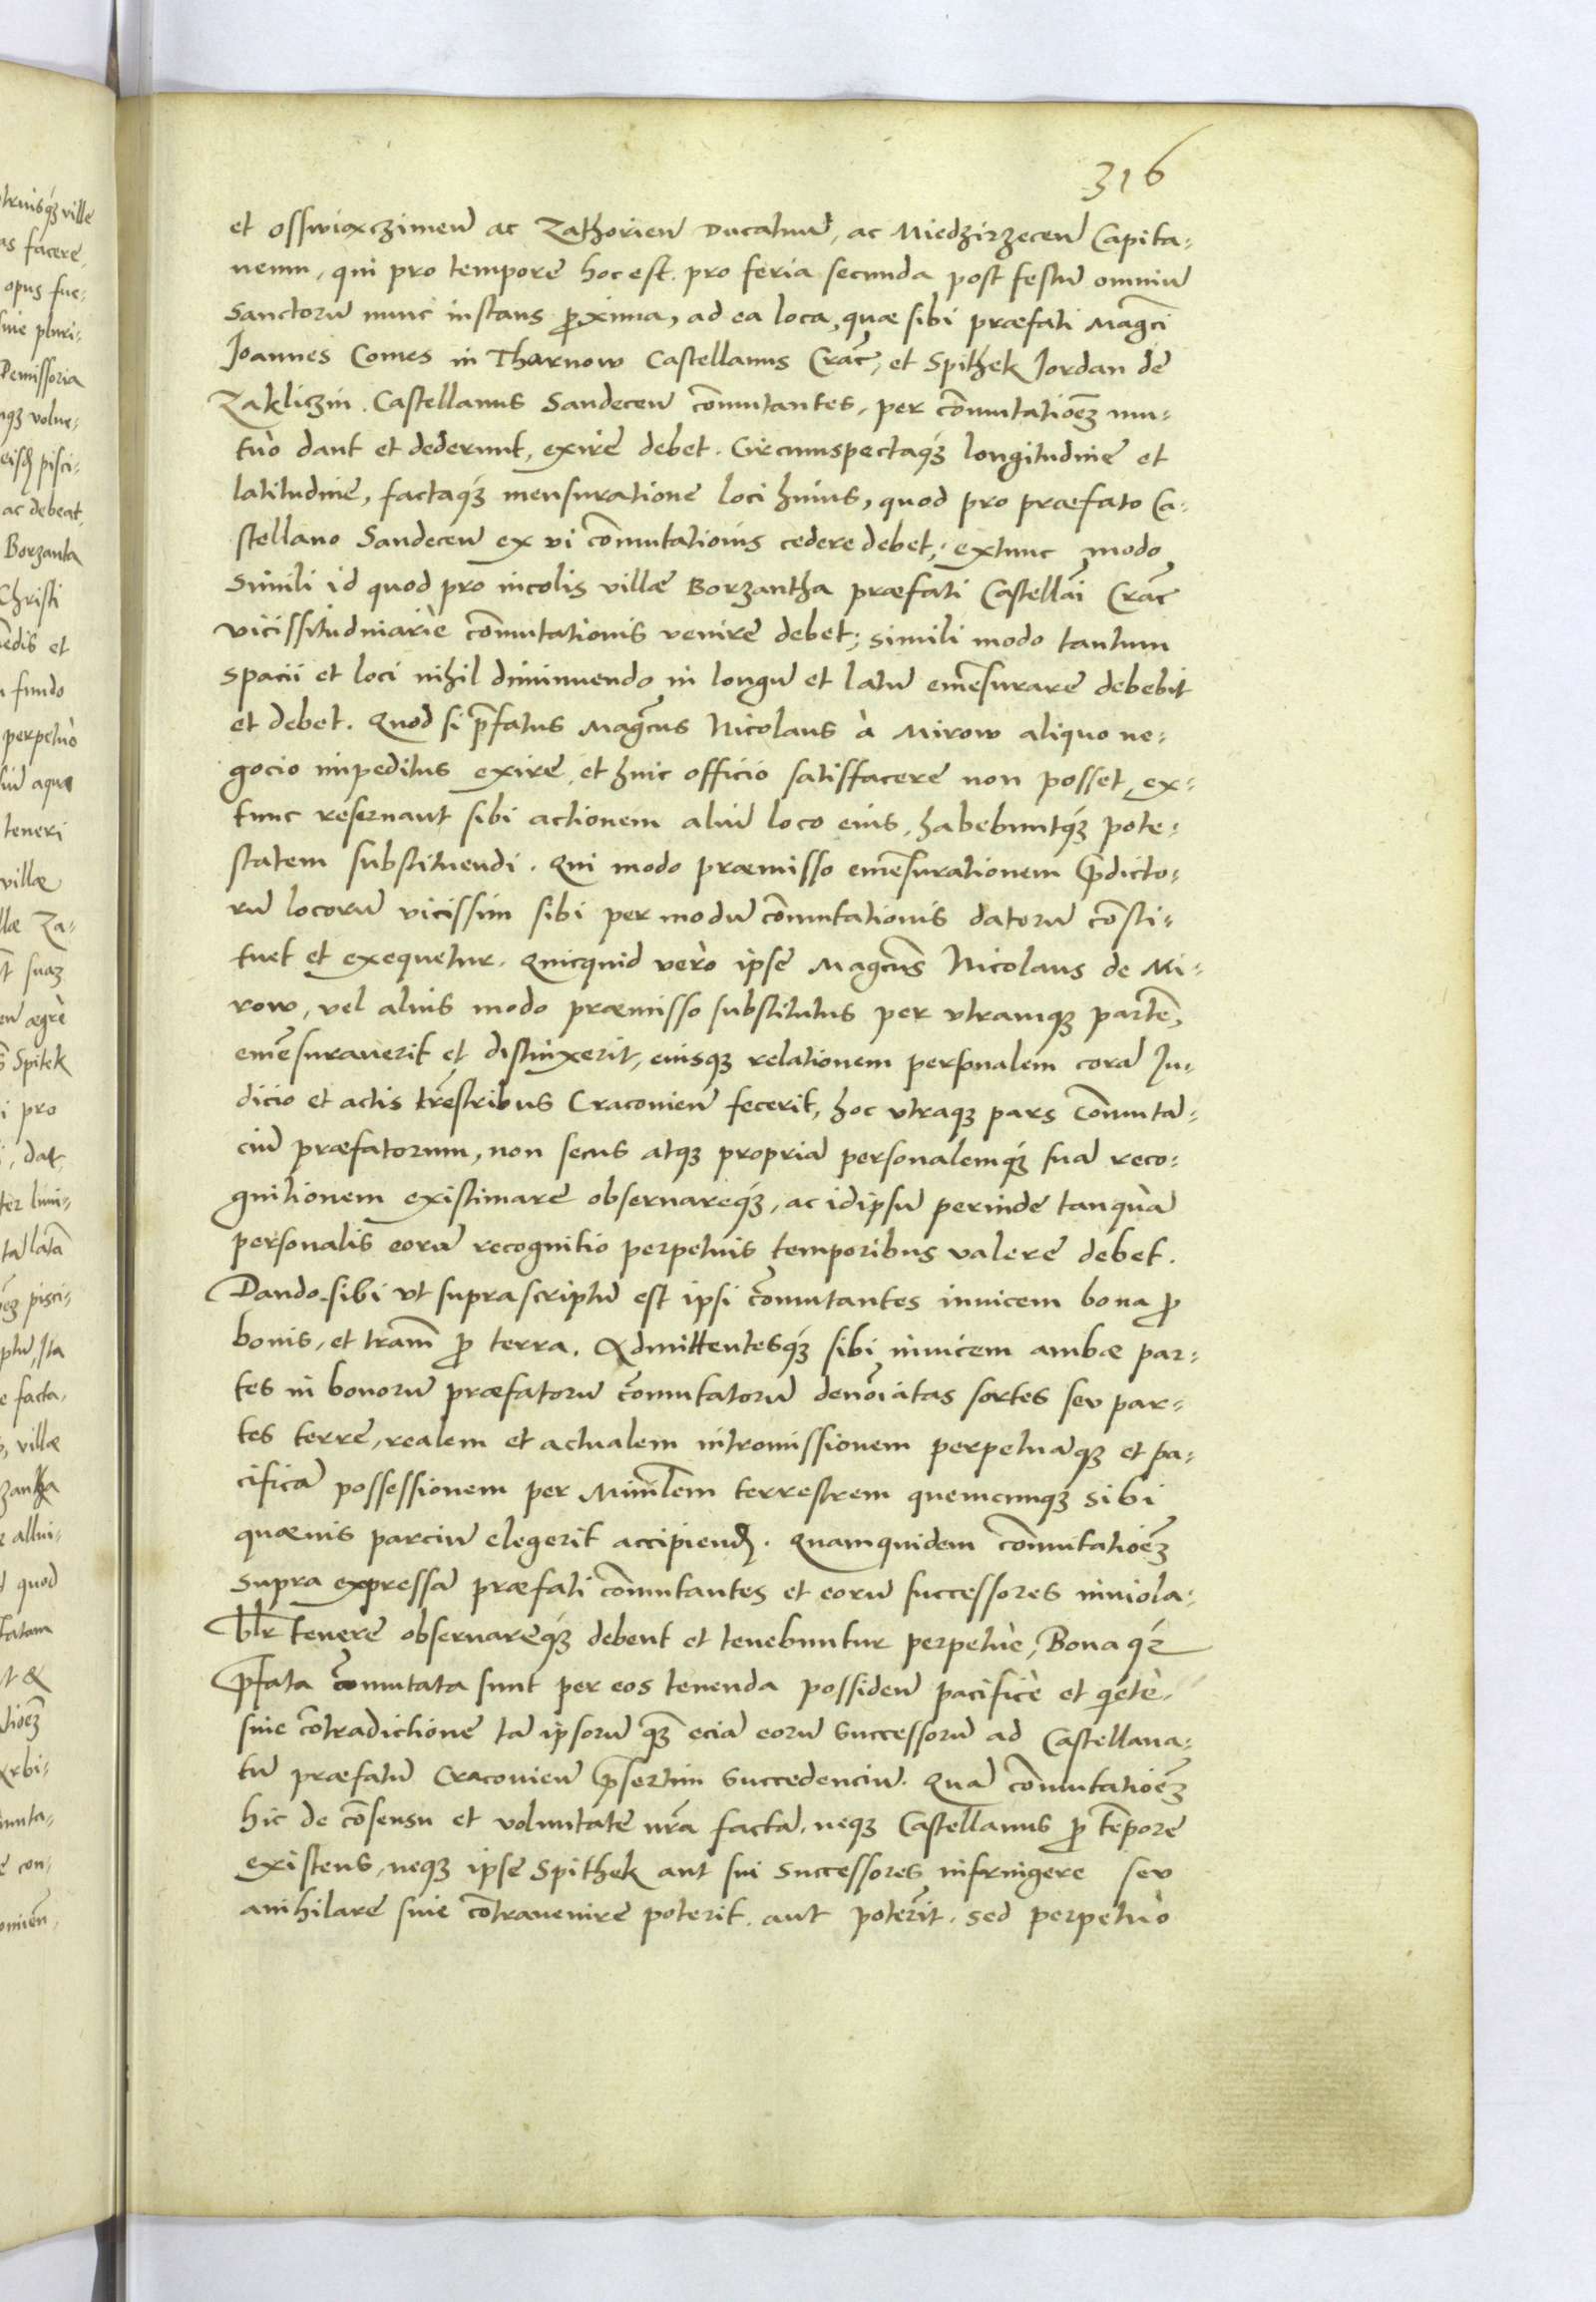 316
et osswiaxczimeñ ac Zathorieñ Ducatuũ, ac Miedzirzeceñ Capita-
neum, qui pro tempore hoc est. pro feria secunda post festũ omniũ
Sanctorũ nunc instans ꝓxima, ad ea loca, quæ sibi præfati Magci
Joannes Comes in Tharnow Castellanus Crac̃, et Spithek Jordan de
Zakliczin. Castellanus Sandeceñ com̃utantes, per com̃utatiõeꝫ mu-
tuò dant et dederunt, exire debet. Circumspectaqꝫ longitudine et
latitudine, factaqꝫ mensuratione loci huius, quod pro præfato Ca-
stellano Sandeceñ ex vi com̃utationis cedere debet, extunc modo
simili id quod pro incolis villæ Borzantha præfati Castellãi Crac̃
vicissitudinarie com̃utationis venire debet; simili modo tantum
spacii et loci nihil diminuendo in longũ et latũ emẽsurare debebit
et debet. Quod si p̃fatus Magcus Nicolaus à Mirow aliquo ne-
gocio impeditus exire, et huic officio satisfacere non posset, ex-
tunc reseruant sibi actionem aliũ loco eius, habebuntqꝫ pote-
statem substituendi. Qui modo præmisso emẽsurationem p̃dicto-
rũ locorũ vicissim sibi per modũ com̃utationis datorũ cõsti-
tuet et exequetur. Quicquid vero ipse Magcus Nicolaus de Mi-
row, vel alius modo præmisso substitutus per vtramqꝫ partẽ,
emẽsurauerit et distinxerit, eiusqꝫ relationem personalem corã Ju-
dicio et actis tr̃estribus Cracouieñ fecerit, hoc vtraqꝫ pars com̃utan-
ciũ præfatorum, non secus atqꝫ propriã personalemqꝫ suã reco-
gnitionem existimare obseruareqꝫ, ac idipsũ perinde tanquã
personalis eorũ recognitio perpetuis temporibus valere debet.
Dando sibi vt suprascriptũ est ipsi com̃utantes inuicem bona ꝓ
bonis, et tram̃ ꝓ terra. Admittentesqꝫ sibi inuicem ambæ par-
tes in bonorũ præfatorũ com̃utatorũ denõiatas sortes seu par-
tes terre, realem et actualem intromissionem perpetuãqꝫ et pa-
cificã possessionem per Minr̃lem terrestrem quemcunqꝫ sibi
quæuis parciũ elegerit accipienđ. Quamquidem com̃utatiõeꝫ
supra expressã præfati com̃utantes et eorũ successores inuiola-
bl̃r tenere obseruareqꝫ debent et tenebuntur perpetuè, Bona qꝫ
p̃fata com̃utata sunt per eos tenenda possideñ pacificè et q̃etè,
siue cõtradictione tã ipsorũ qꝫ̃ eciã eorũ Successorũ ad Castellana-
tũ præfatũ Cracouieñ p̃sertim Succedenciũ. Quã com̃utatiõeꝫ
hic de cõsensu et voluntate nr̃a factã, neqꝫ Castellanus ꝓ tẽpore
existens, neqꝫ ipse Spithek aut sui Successores infringere seu
anihilare siue cõtrauenire poterit, aut poter̃it. sed perpetuò